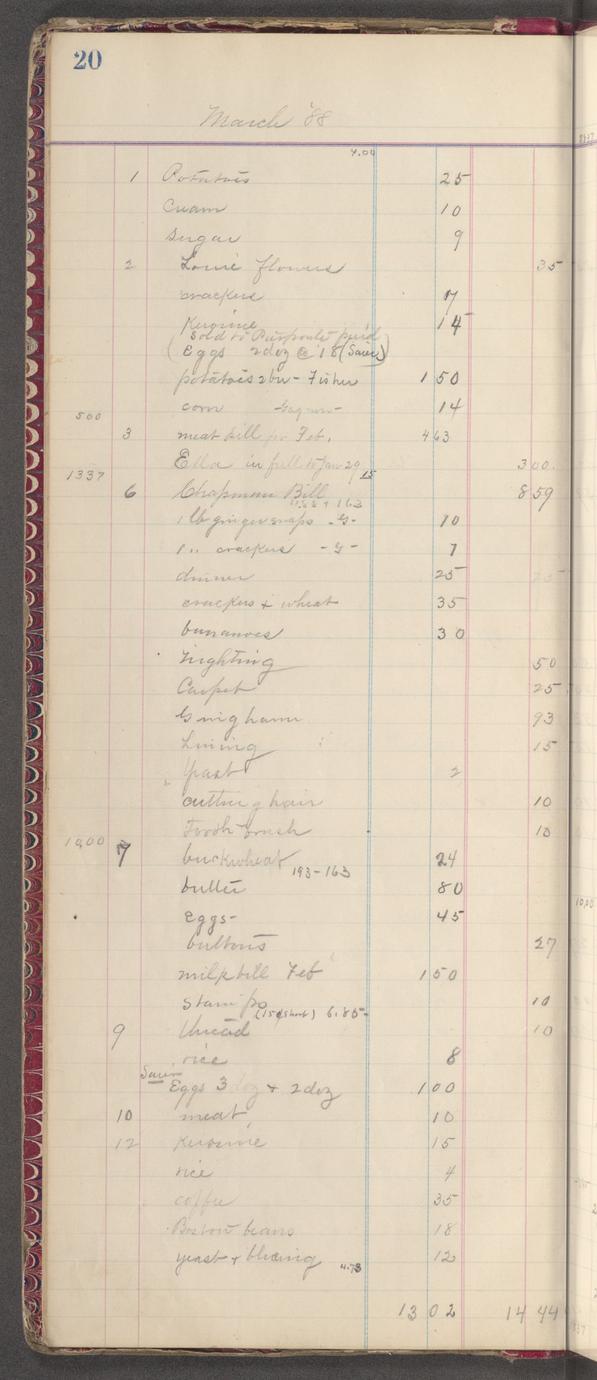 20
March '88
4.00
1 Potatois 25
Cream 10
Sugar 9
2 Lonie flowers 35
crackers 7
Kerosine 14
(Sold to paid
Eggs 2doz @ 18 (Saved)
potatoes 2bu - Fisher 1 50
500 corn 14
3 meat bill for Feb. 4 63
Ella in full to Jan 29 3 00.
1337 15
6 Chapman Bill 8 59
1 lb ginger snaps - G - 10
1 " crackers - G - 7
dinner 25
crackers & wheat 35
bananoes 30
Nighting 50
Carpet 25
Gingham 93
Lining 15
Yeast 2
cutting hair 10
Tooth brush 10
1000 7 buckwheat 193-163 24
butter 80
Eggs - 45
buttons 27
milk bill Feb 1 50
stamps 10
(15¢ short) 6.85-
9 thread 10
rice 8
Eggs 3 doz & 2 doz 1 00
10 meat 10
12 Kerosine 15
rice 4
coffee 35
Boston beans 18
yeast & bluing 12
4.73
13 02 14 44